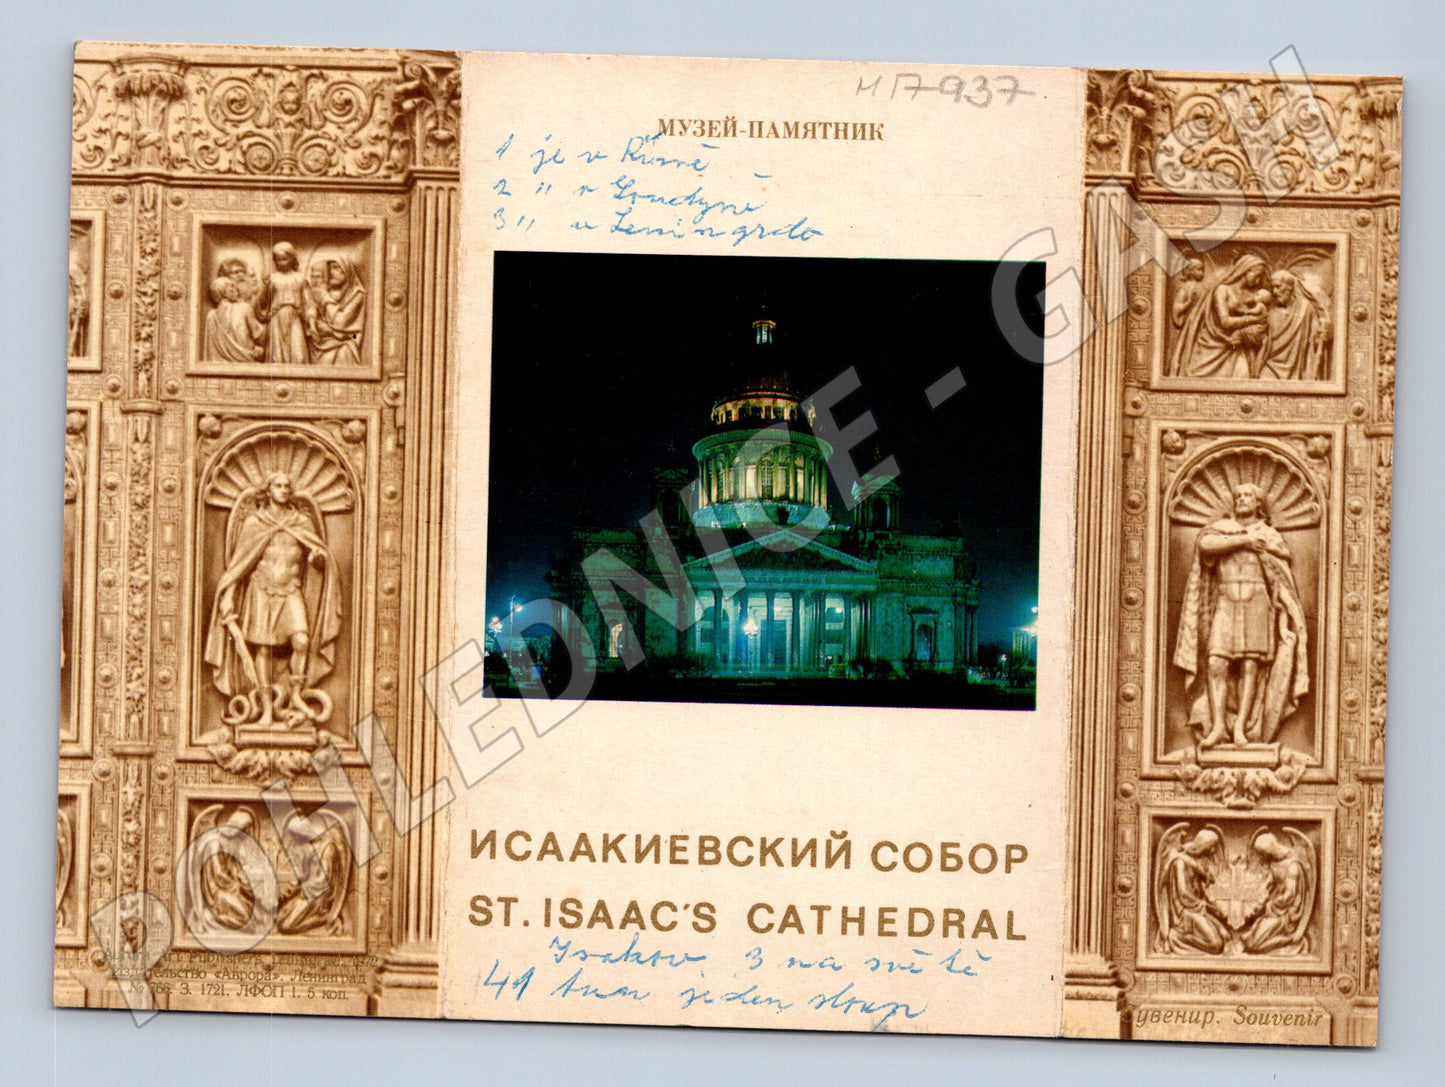 МП-937
МУЗЕЙ-ПАМЯТНИК
1 je v Římě
2 " v Londýně
3 " v Leningrado
ИСААКИЕВСКИЙ СОБОР
ST. ISAAC'S CATHEDRAL
3 na světě
41 tun jeden sloup
Publishers Leningrad. 1972
Издательство «Аврора». Ленинград
№ 766. З. 1721. ЛФОП 1. 5 коп.
Сувенир. Souvenir
POHLEDNICE - GASH